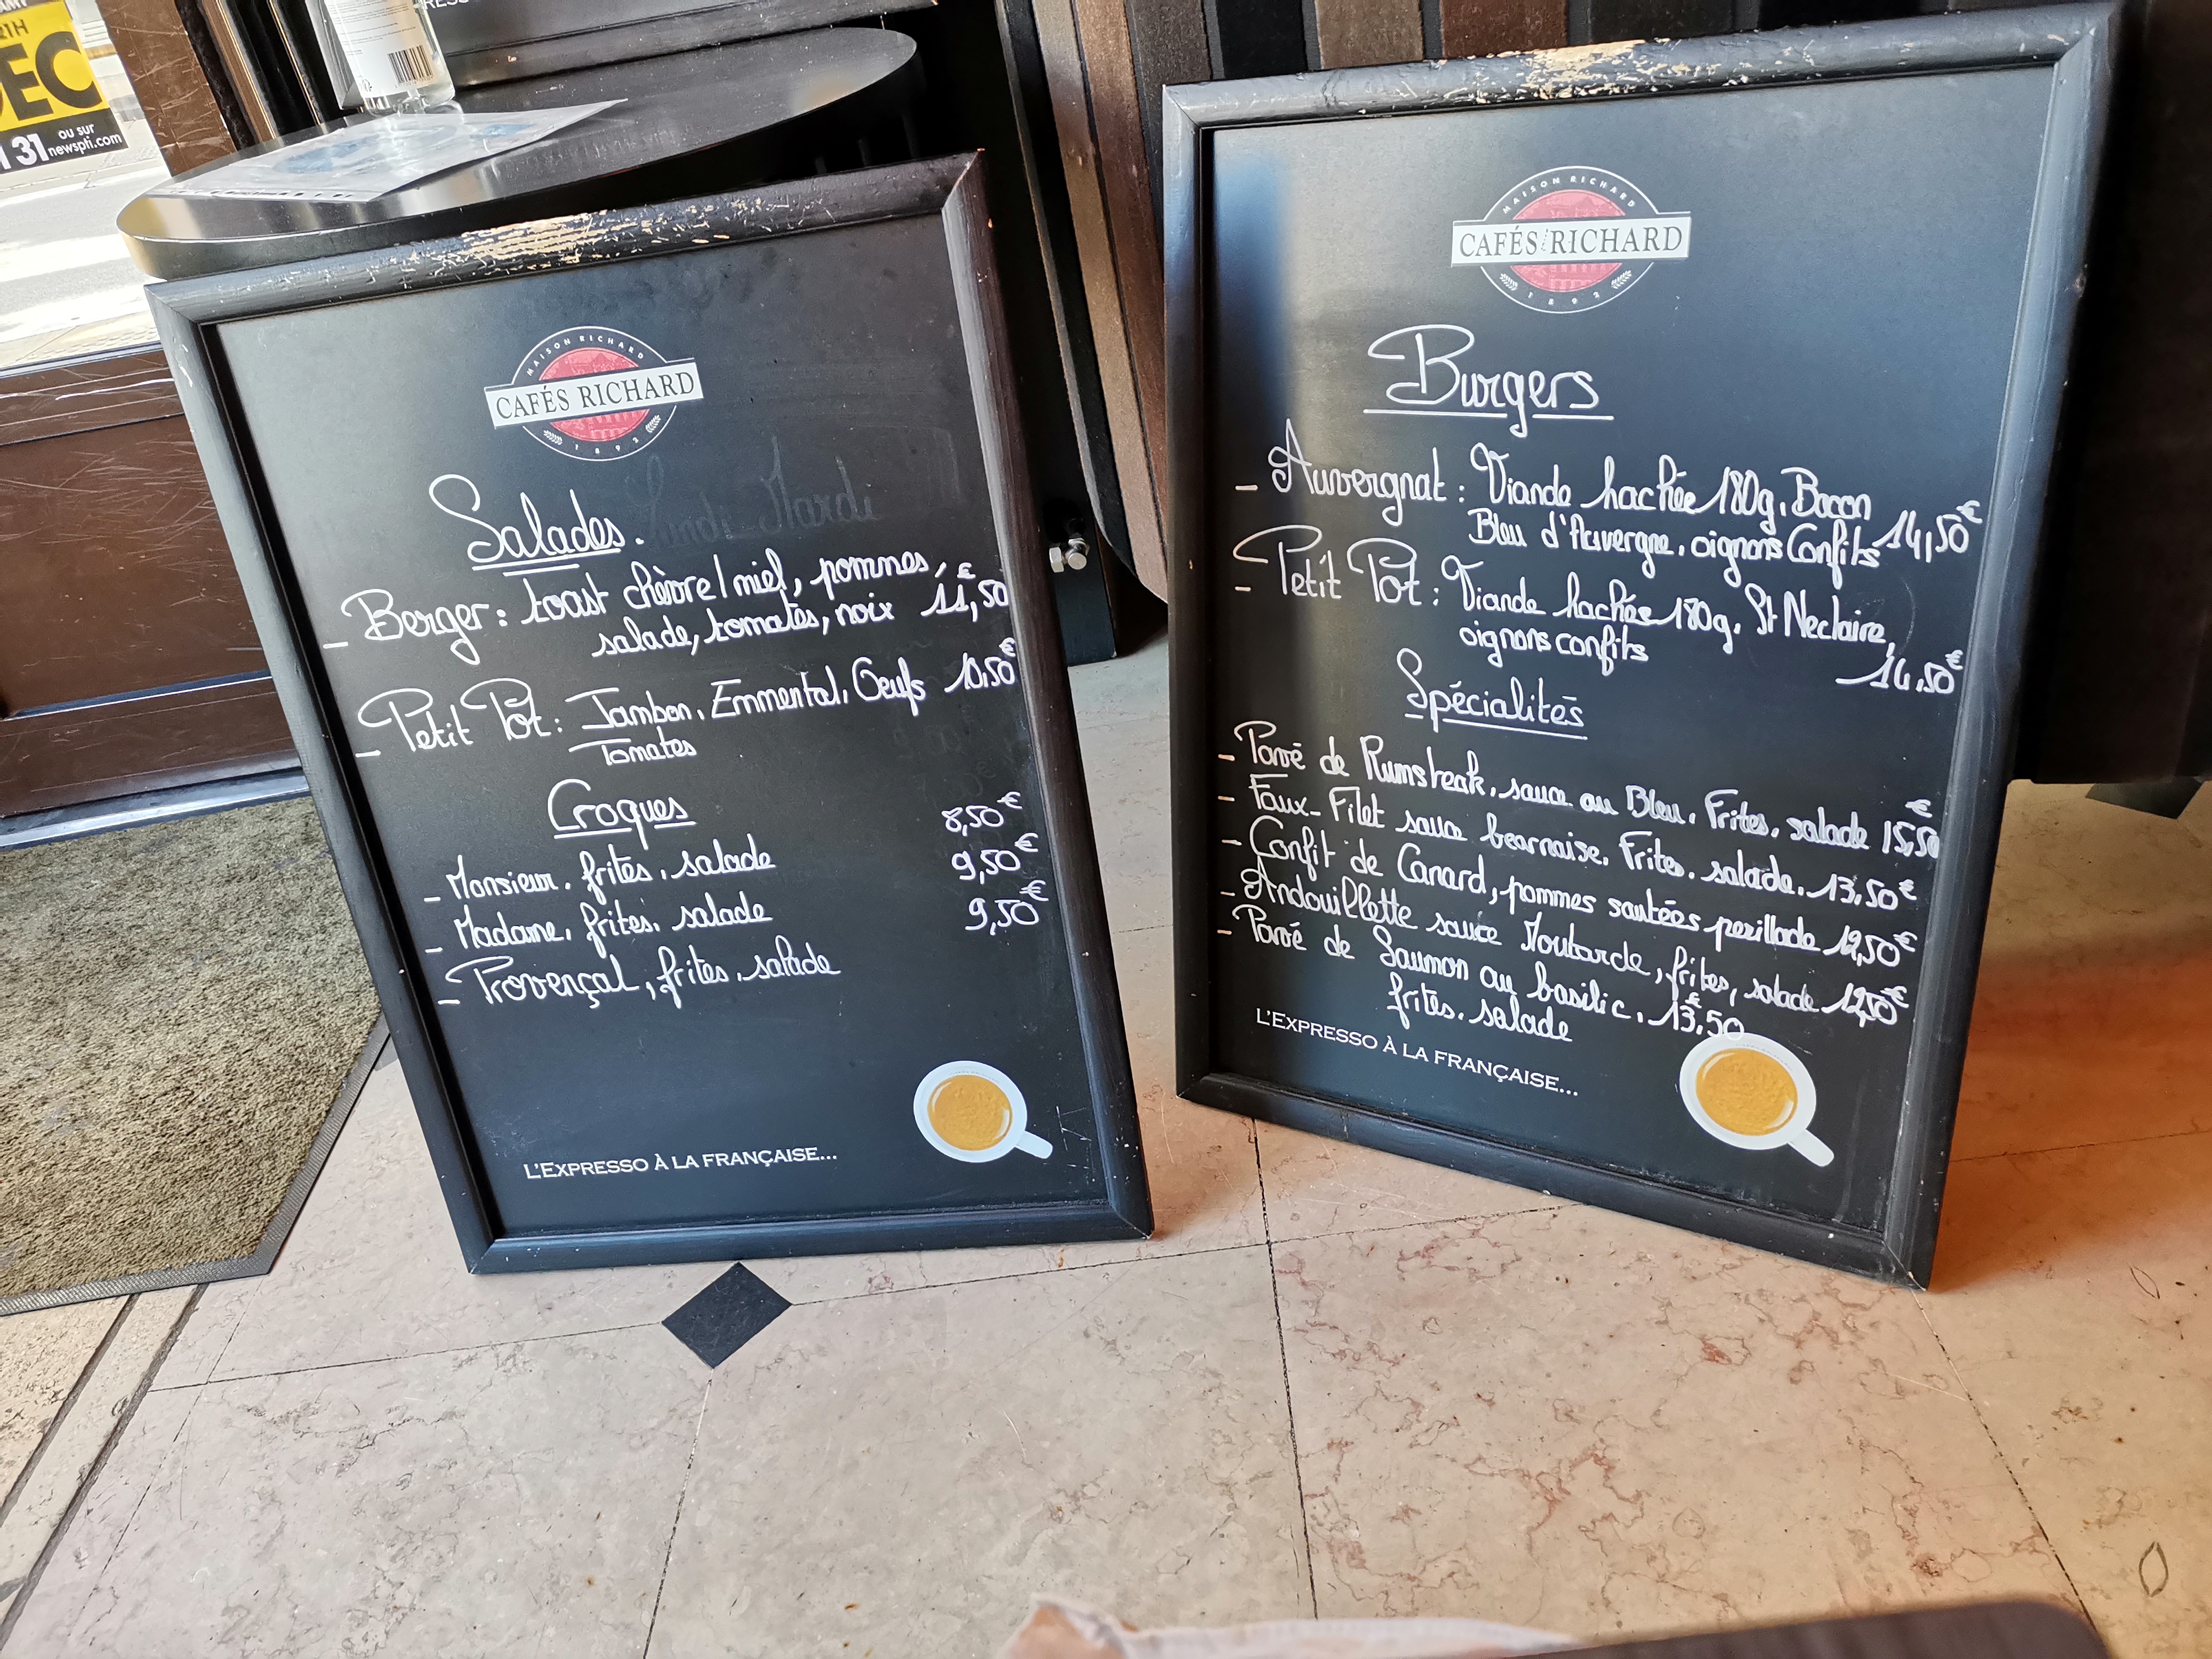 RTH
DEC
31 ou sur
newspti.com
MAISON RICHARD
CAFÉS RICHARD
1892
Salades.
Lundi Mardi
- Berger: toast chèvre/miel, pommes,
salade, tomates, noix 11,50€
- Petit Pot: Jambon, Emmental, Oeufs 10,50€
Tomates
Croques
8,50€
- Monsieur, frites, salade 9,50€
- Madame, frites, salade 9,50€
- Provençal, frites, salade
L'EXPRESSO À LA FRANÇAISE...
MAISON RICHARD
CAFÉS RICHARD
1892
Burgers
- Auvergnat: Viande hachée 180g, Bacon
Bleu d'Auvergne, oignons Confits 14,50€
- Petit Pot: Viande hachée 180g, St Neclaire,
oignons confits
14,50€
Spécialités
- Pavé de Rumsteak, sauce au Bleu, Frites, salade 15,50€
- Faux-Filet sauce bearnaise, Frites, salade, 13,50€
- Confit de Canard, pommes sautées persillade 12,50€
- Andouillette sauce Moutarde, frites, salade 12,50€
- Pavé de Saumon au basilic, 13,50€
frites, salade
L'EXPRESSO À LA FRANÇAISE...